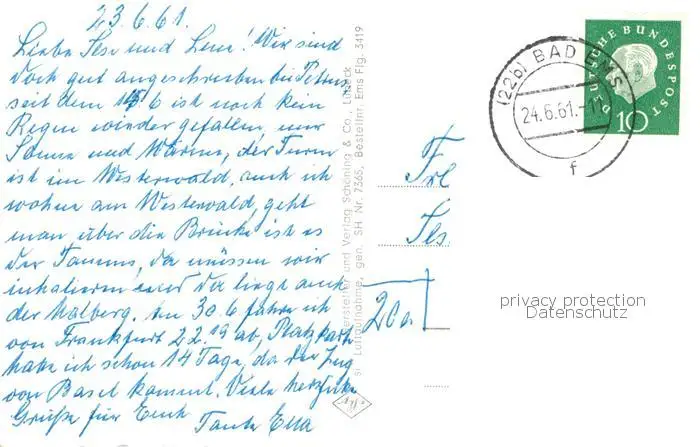 23.6.61.
Liebe Ilse und Lene! Wir sind
doch gut angeschrieben bei Petrus
seit dem 15/6 ist noch kein
Regen wieder gefallen, nur
Sonne und Wärme, der Turm
ist im Westerwald, auch ich
wohne am Westerwald, geht
man über die Brücke ist es
der Taunus, da müssen wir
inhalieren und da liegt auch
der Malberg. Am 30.6 fahre ich
von Frankfurt 22.19 ab, Platzkarte
habe ich schon 14 Tage, da der Zug
von Basel kommt. Viele herzliche
Grüße für Euch
Tante Ella
Hersteller und Verlag Schöning & Co., Lübeck
Luftaufnahme, gen. SH Nr. 7365, Bestellnr. Ems Flg. 3419
Frl
Ils
20a
(22b) BAD EMS
24.6.61.
f
DEUTSCHE BUNDESPOST
10
privacy protection
Datenschutz